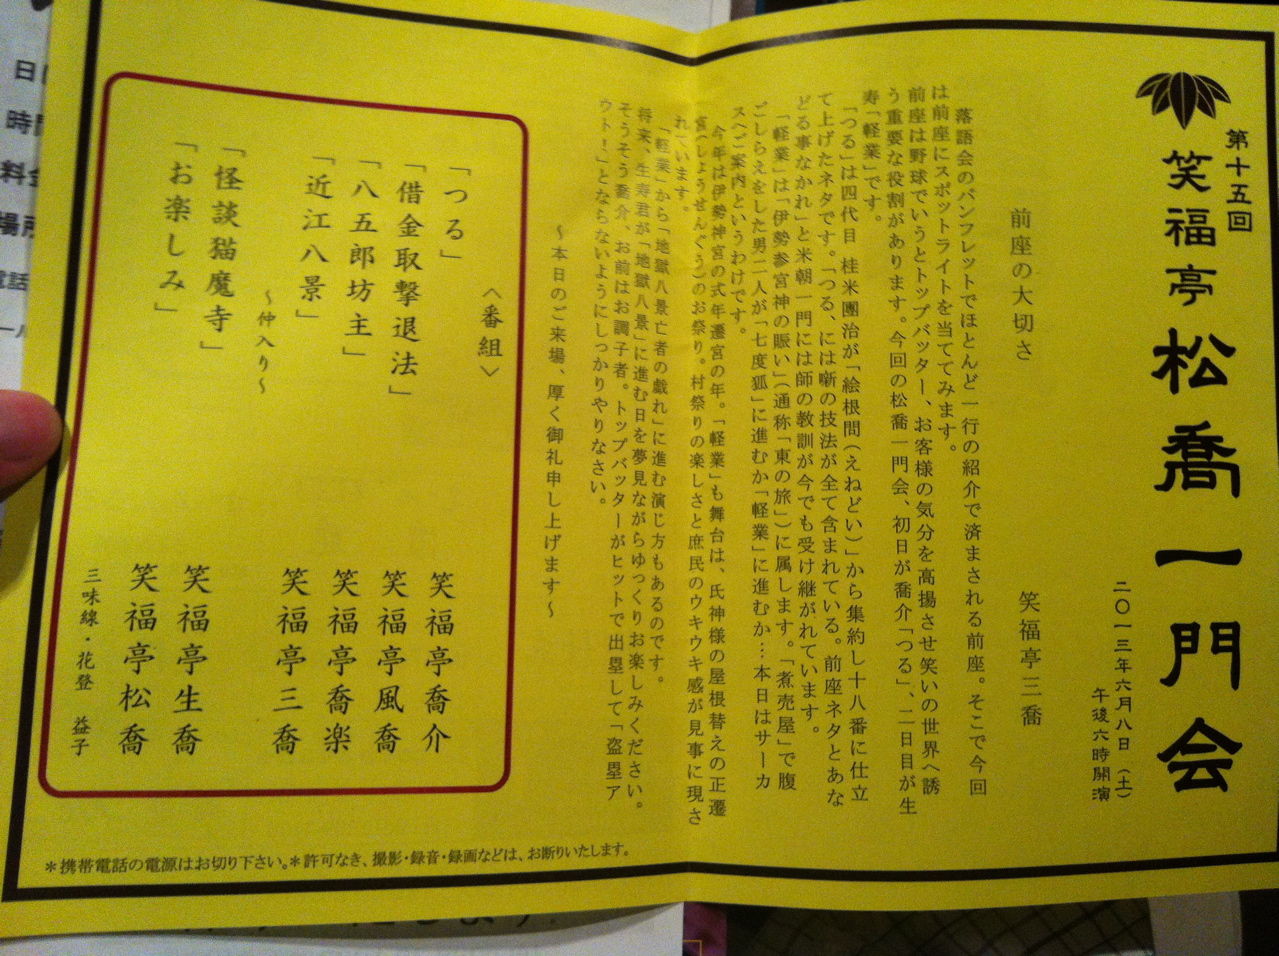 第十五回
笑福亭松喬一門会
二〇一三年六月八日（土）
午後六時開演
前座の大切さ
笑福亭三喬
落語会のパンフレットでほとんど一行の紹介で済まされる前座。そこで今回
は前座にスポットライトを当ててみます。
前座は野球でいうとトップバッター、お客様の気分を高揚させ笑いの世界へ誘
う重要な役割があります。今回の松喬一門会、初日が喬介「つる」、二日目が生
寿「軽業」です。
「つる」は四代目 桂米團治が「絵根問（えねどい）」から集約し十八番に仕立
て上げたネタです。「つる、には噺の技法が全て含まれている。前座ネタとあな
どる事なかれ」と米朝一門には師の教訓が今でも受け継がれています。
「軽業」は「伊勢参宮神の賑い」（通称「東の旅」）に属します。「煮売屋」で腹
ごしらえをした男二人が「七度狐」に進むか「軽業」に進むか…本日はサーカ
スへご案内というわけです。
今年は伊勢神宮の式年遷宮の年。「軽業」も舞台は、氏神様の屋根替えの正遷
宮（しょうせんぐう）のお祭り。村祭りの楽しさと庶民のウキウキ感が見事に現さ
れています。
「軽業」から「地獄八景亡者の戯れ」に進む演じ方もあるのです。
将来、生寿君が「地獄八景」に進む日を夢見ながらゆっくりお楽しみください。
そうそう喬介、お前はお調子者。トップバッターがヒットで出塁して「盗塁ア
ウト！」とならないようにしっかりやりなさい。
～本日のご来場、厚く御礼申し上げます～
〈番組〉
「つる」 笑福亭喬介
「借金取撃退法」 笑福亭風喬
「八五郎坊主」 笑福亭喬楽
「近江八景」 笑福亭三喬
～仲入り～
「怪談猫魔寺」 笑福亭生喬
「お楽しみ」 笑福亭松喬
三味線・花登 益子
＊携帯電話の電源はお切り下さい。＊許可なき、撮影・録音・録画などは、お断りいたします。
日
時間
料金
場所
電話